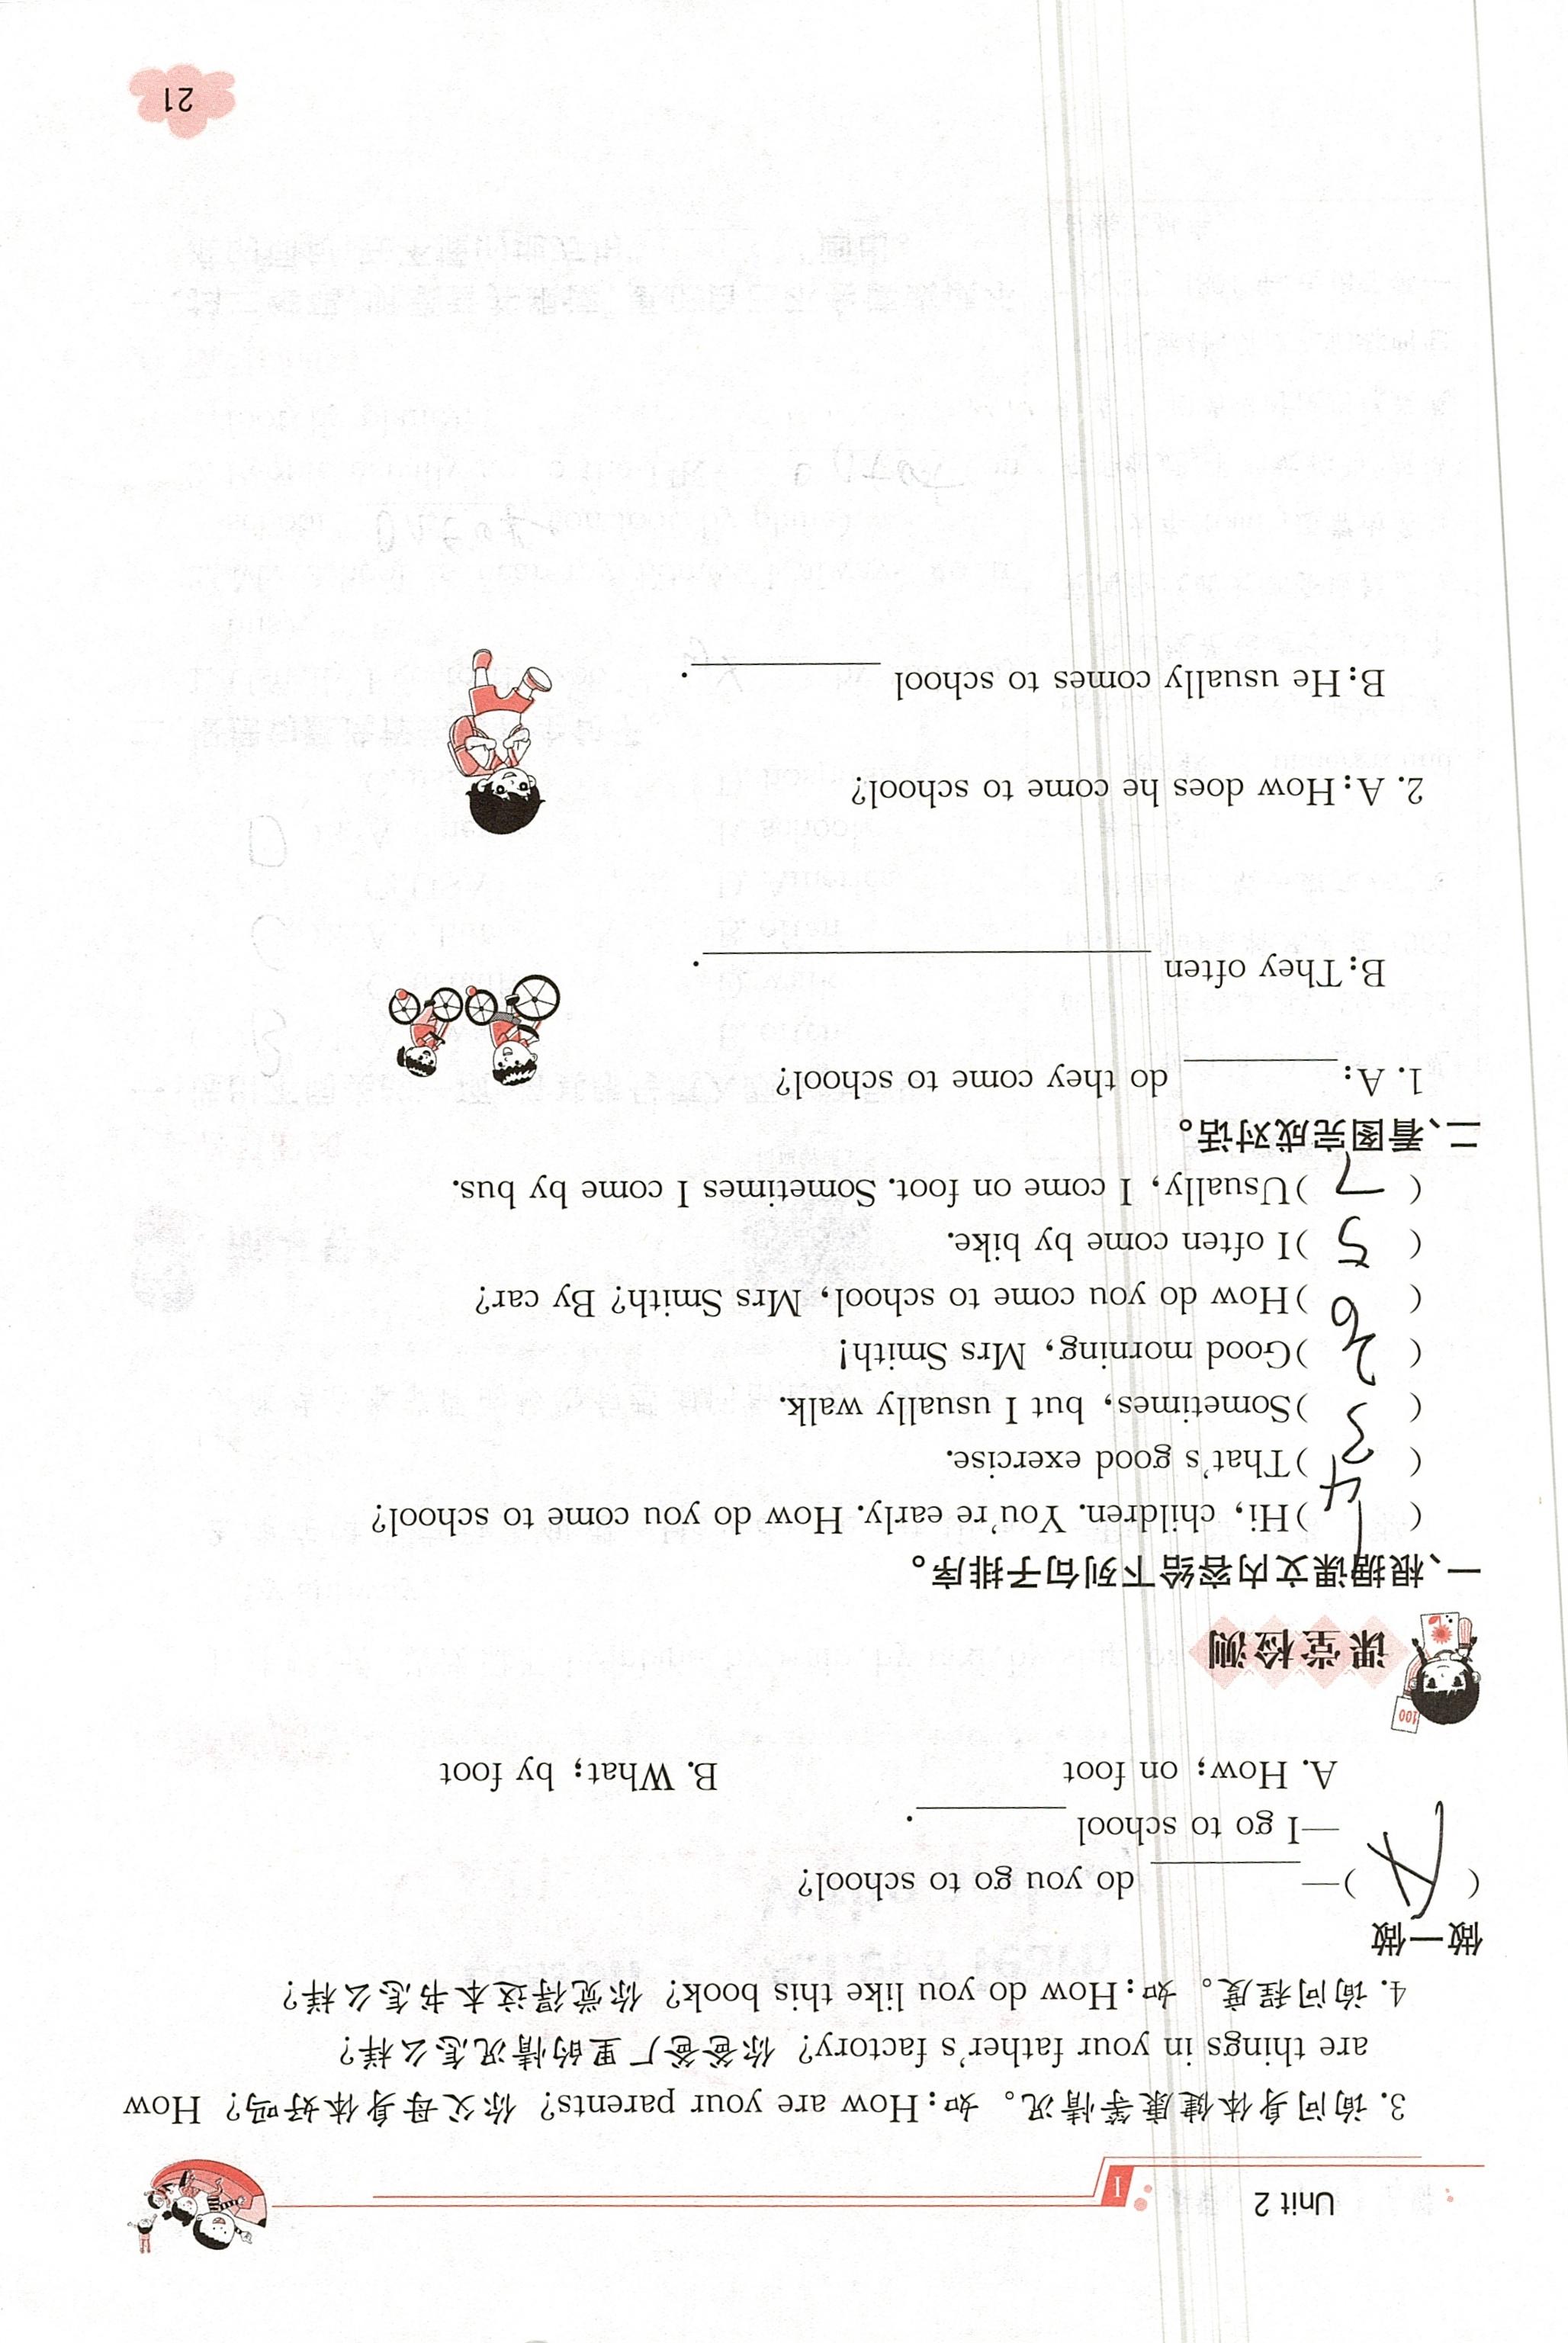 Unit 2 I
3. 询问身体健康等情况。如:How are your parents? 你父母身体好吗? How
are things in your father's factory? 你爸爸厂里的情况怎么样?
4. 询问程度。如:How do you like this book? 你觉得这本书怎么样?
做一做
( A )—________ do you go to school?
—I go to school ________.
A. How; on foot B. What; by foot
100
课堂检测
一、根据课文内容给下列句子排序。
( 1 )Hi, children. You're early. How do you come to school?
( 4 )That's good exercise.
( 3 )Sometimes, but I usually walk.
( 2 )Good morning, Mrs Smith!
( 6 )How do you come to school, Mrs Smith? By car?
( 5 )I often come by bike.
( 7 )Usually, I come on foot. Sometimes I come by bus.
二、看图完成对话。
1. A: ________ do they come to school?
B: They often ________________________.
2. A: How does he come to school?
B: He usually comes to school __________.
21